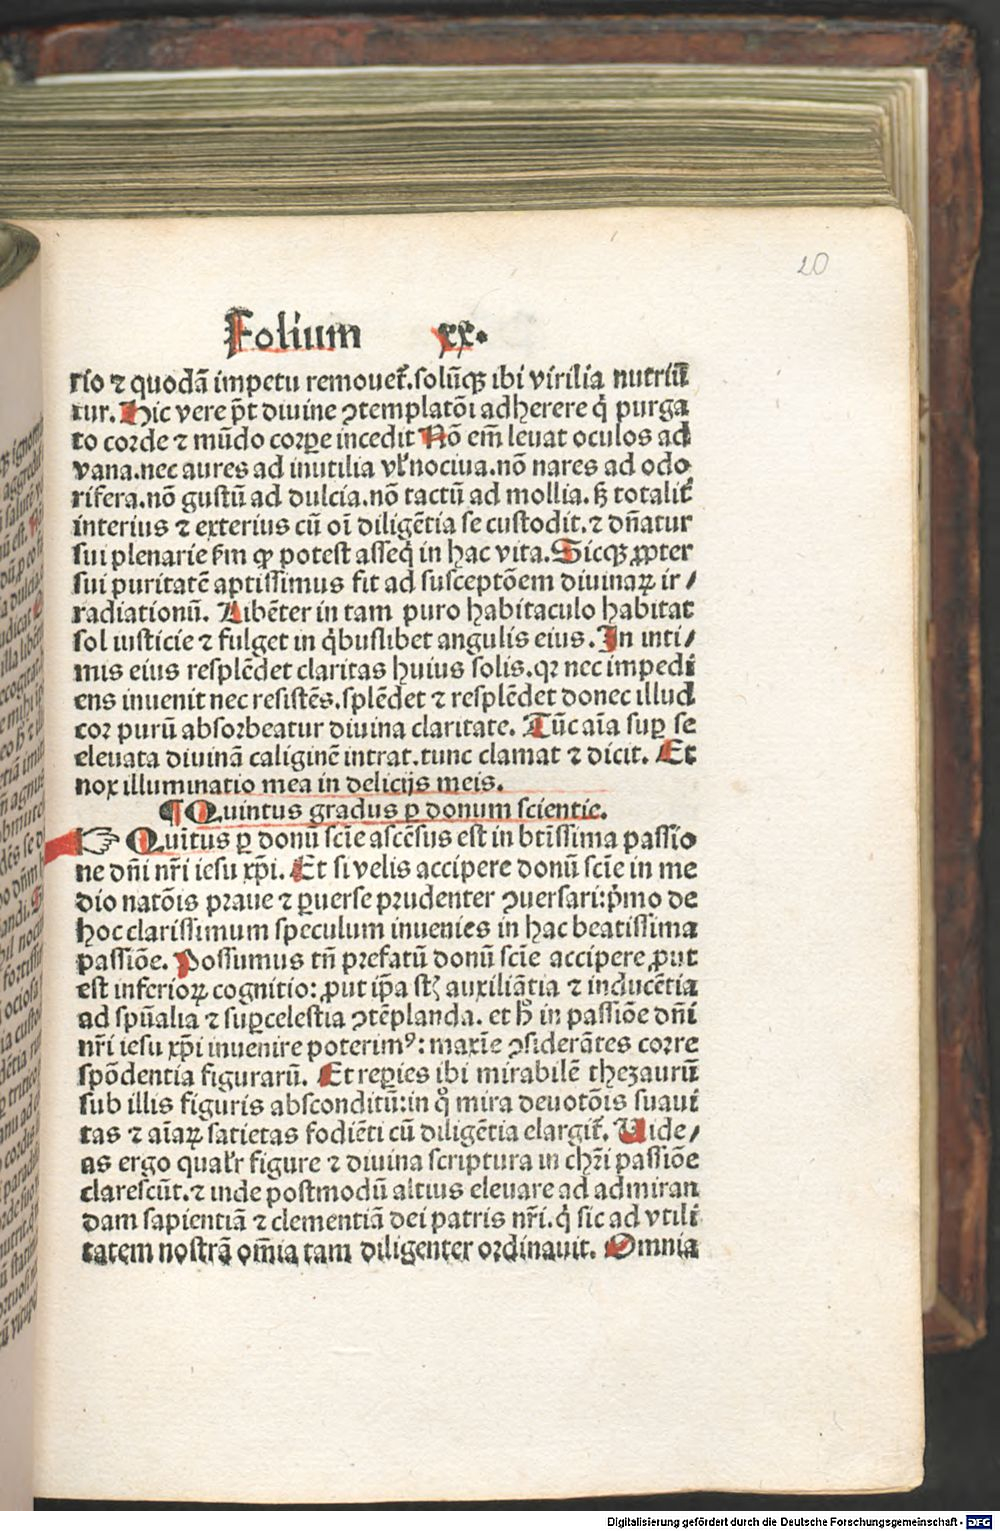 20
Folium xx.
rio ⁊ quodā impetu remouet᷑.solūqꝫ ibi virilia nutriū
tur. Hic vere pt̄ diuine ꝯtemplatōi adherere q̇ purga
to corde ⁊ mūdo corꝑe incedit Nō em̄ leuat oculos ad
vana.nec aures ad inutilia vl̓ nociua.nō nares ad odo
rifera.nō gustū ad dulcia.nō tactū ad mollia. sꝫ totalit᷑
interius ⁊ exterius cū oī diligētia se custodit.⁊ dn̄atur
sui plenarie ẜm ꝙ potest asseq̇ in hac vita. Sicqꝫ ꝓpter
sui puritatē aptissimus fit ad susceptōem diuinaꝝ ir/
radiationū. Libēter in tam puro habitaculo habitat
sol iusticie ⁊ fulget in q̇buslibet angulis eius. In inti/
mis eius resplēdet claritas huius solis.qꝛ nec impedi
ens inuenit nec resistēs.splēdet ⁊ resplēdet donec illud
cor purū absorbeatur diuina claritate. Tūc aīa suꝑ se
eleuata diuinā caliginē intrat.tunc clamat ⁊ dicit. Et
nox illuminatio mea in delicijs meis.
¶ Quintus gradus ꝑ donum scientie.
☞ Quītus ꝑ donū scīe ascēsus est in btīssima passio
ne dn̄i nr̄i iesu xp̄i. Et si velis accipere donū scīe in me
dio natōis praue ⁊ ꝑuerse prudenter ꝯuersari:pͥmo de
hoc clarissimum speculum inuenies in hac beatissima
passiōe. Possumus tn̄ prefatū donū scīe accipere ꝓut
est inferioꝝ cognitio: ꝓut ip̄a stꝫ auxiliātia ⁊ inducētia
ad spūalia ⁊ suꝑcelestia ꝯtēplanda. et h̄ in passiōe dn̄i
nr̄i iesu xp̄i inuenire poterimꝰ: maxīe ꝯsiderātes corre
spōdentia figurarū. Et reꝑies ibi mirabilē thezaurū
sub illis figuris absconditū:in qͦ mira deuotōis suaui
tas ⁊ aīaꝝ satietas fodiēti cū diligētia elargit᷑. Uide/
as ergo qual̓r figure ⁊ diuina scriptura in chr̄i passiōe
clarescūt.⁊ inde postmodū altius eleuare ad admiran
dam sapientiā ⁊ clementiā dei patris nr̄i.q̇ sic ad vtili
tatem nostrā om̄ia tam diligenter ordinauit. Omnia
Digitalisierung gefördert durch die Deutsche Forschungsgemeinschaft - DFG